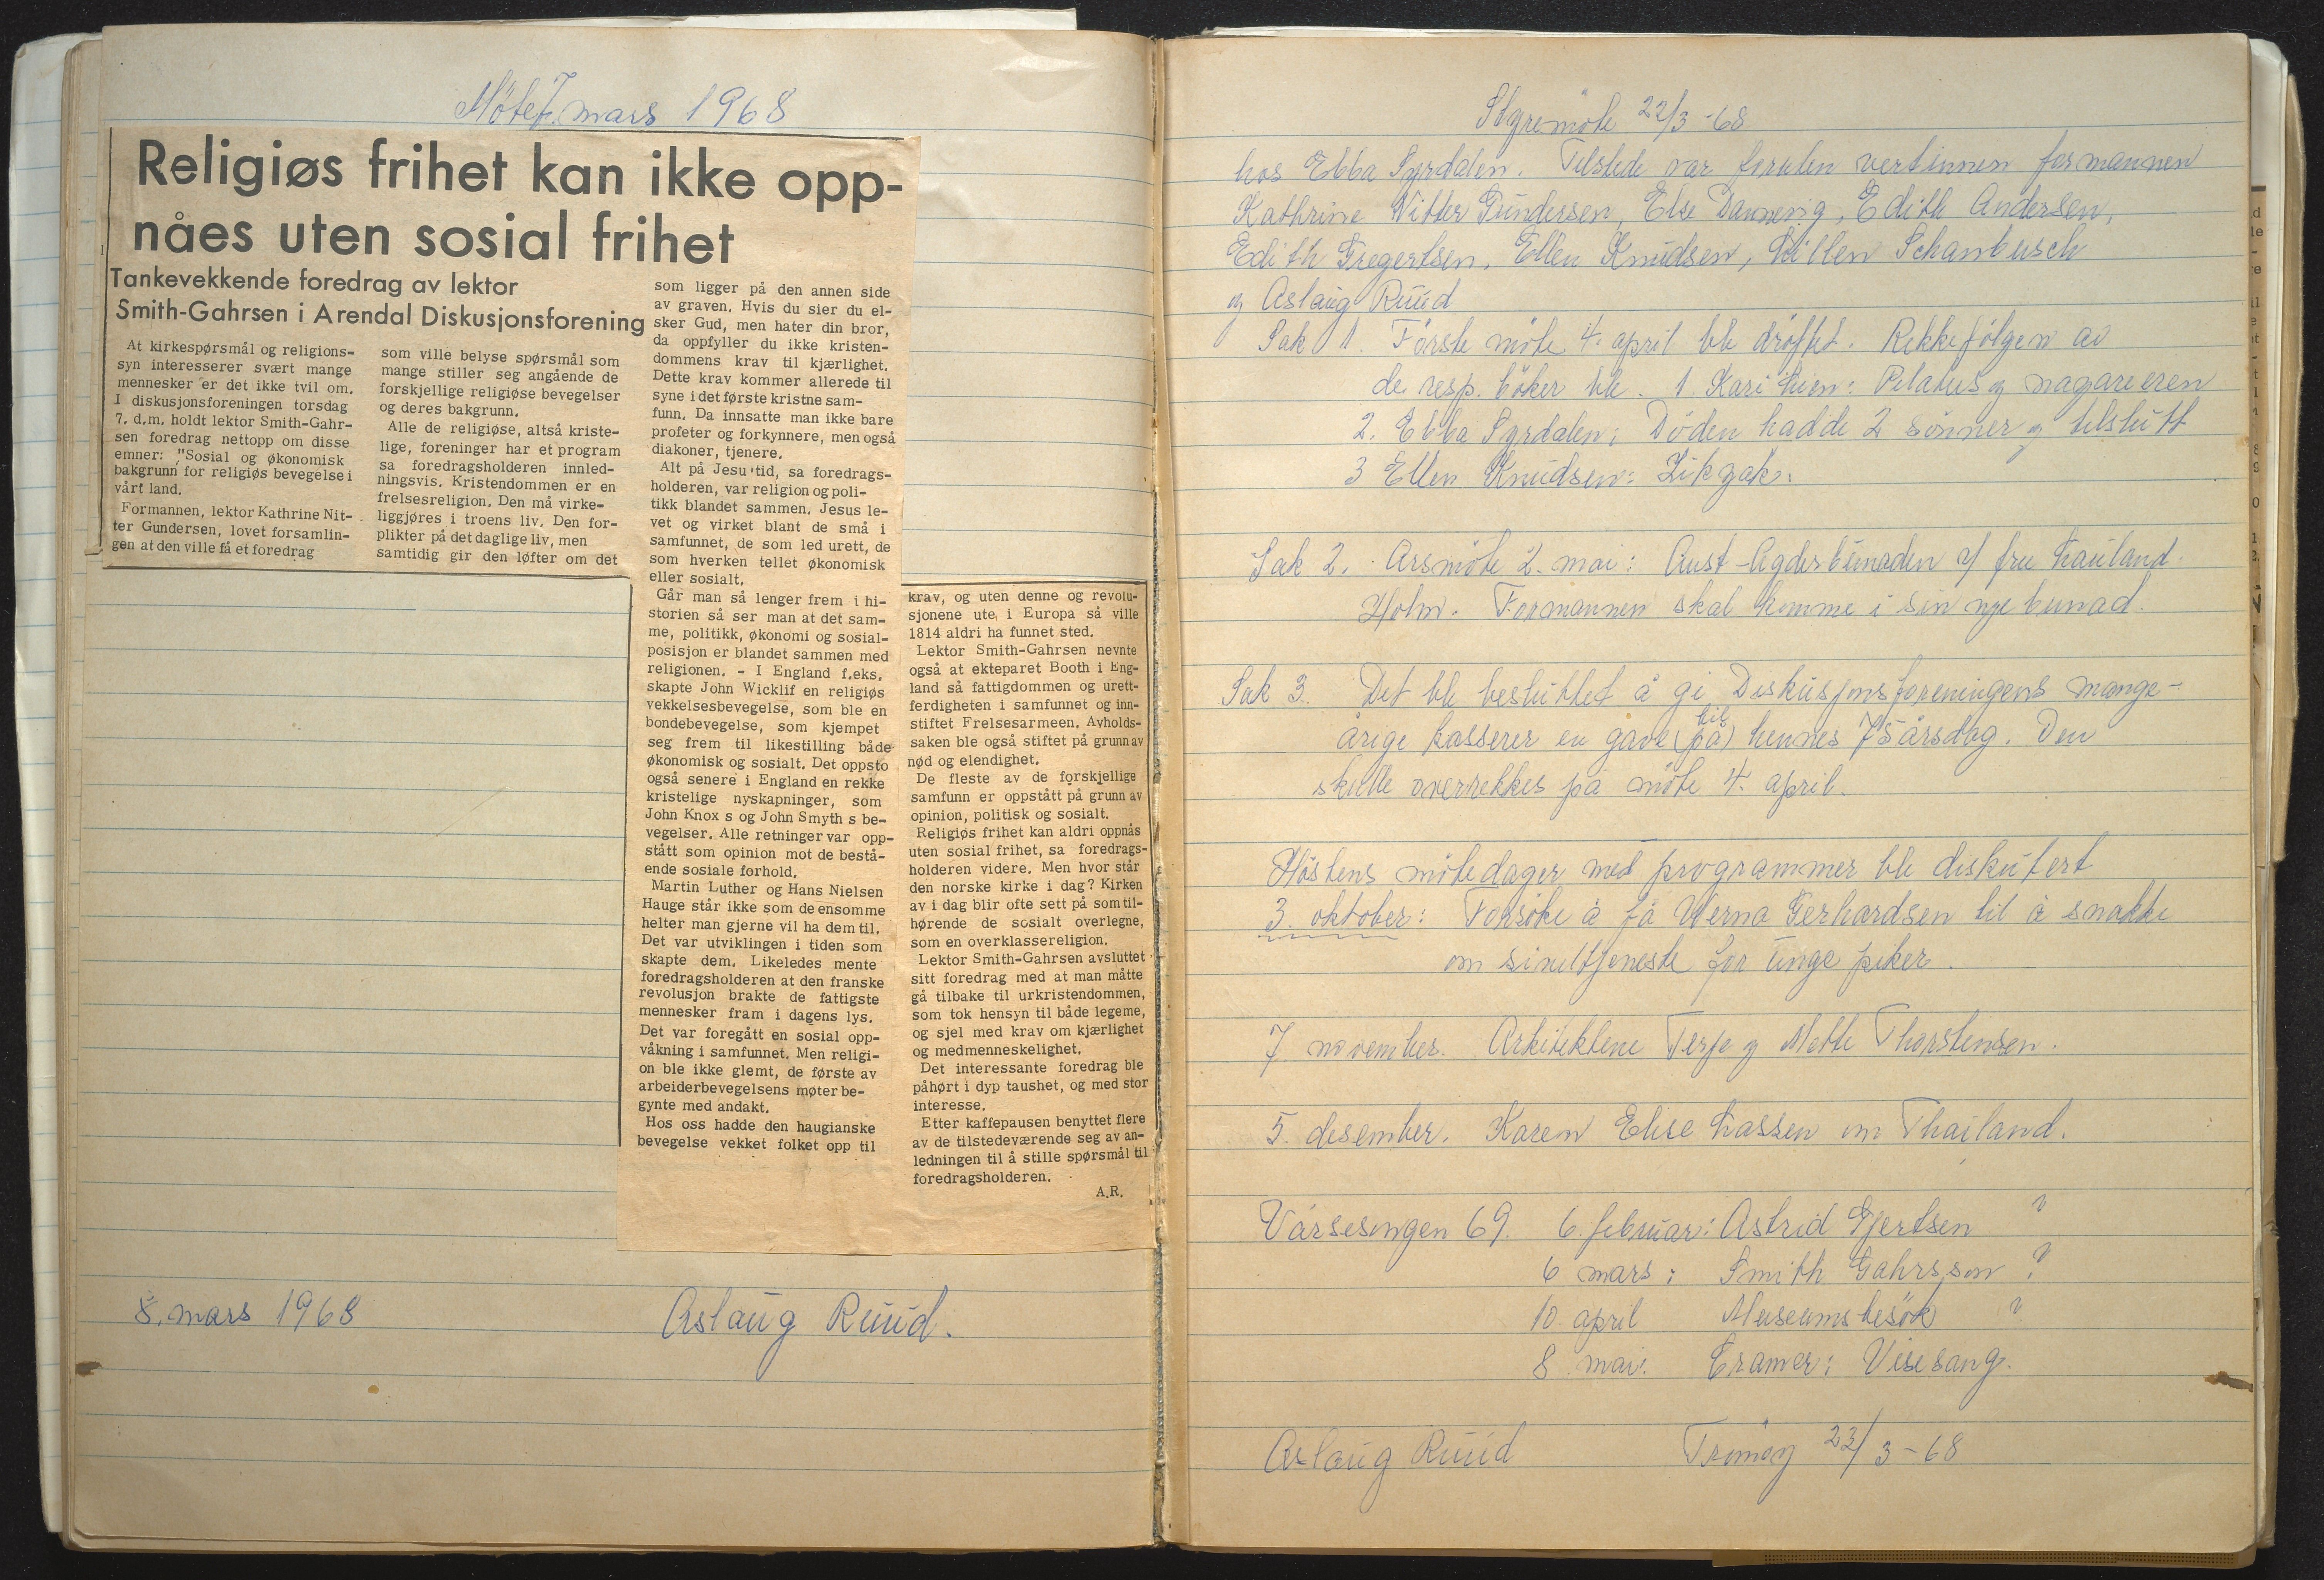 Møte 7. mars 1968
Religiøs frihet kan ikke opp-
nåes uten sosial frihet
Tankevekkende foredrag av lektor
Smith-Gahrsen i Arendal Diskusjonsforening
At kirkespørsmål og religions-
syn interesserer svært mange
mennesker er det ikke tvil om.
I diskusjonsforeningen torsdag
7. d.m. holdt lektor Smith-Gahr-
sen foredrag nettopp om disse
emner: "Sosial og økonomisk
bakgrunn for religiøs bevegelse i
vårt land.
Formannen, lektor Kathrine Nit-
ter Gundersen, lovet forsamlin-
gen at den ville få et foredrag
som ville belyse spørsmål som
mange stiller seg angående de
forskjellige religiøse bevegelser
og deres bakgrunn.
Alle de religiøse, altså kriste-
lige, foreninger har et program
sa foredragsholderen innled-
ningsvis. Kristendommen er en
frelsesreligion. Den må virke-
liggjøres i troens liv. Den for-
plikter på det daglige liv, men
samtidig gir den løfter om det
som ligger på den annen side
av graven. Hvis du sier du el-
sker Gud, men hater din bror,
da oppfyller du ikke kristen-
dommens krav til kjærlighet.
Dette krav kommer allerede til
syne i det første kristne sam-
funn. Da innsatte man ikke bare
profeter og forkynnere, men også
diakoner, tjenere.
Alt på Jesu tid, sa foredrags-
holderen, var religion og poli-
tikk blandet sammen. Jesus le-
vet og virket blant de små i
samfunnet, de som led urett, de
som hverken tellet økonomisk
eller sosialt.
Går man så lenger frem i hi-
storien så ser man at det sam-
me, politikk, økonomi og sosial-
posisjon er blandet sammen med
religionen. - I England f.eks.
skapte John Wicklif en religiøs
vekkelsesbevegelse, som ble en
bondebevegelse, som kjempet
seg frem til likestilling både
økonomisk og sosialt. Det oppsto
også senere i England en rekke
kristelige nyskapninger, som
John Knox s og John Smyth s be-
vegelser. Alle retninger var opp-
stått som opinion mot de bestå-
ende sosiale forhold.
Martin Luther og Hans Nielsen
Hauge står ikke som de ensomme
helter man gjerne vil ha dem til.
Det var utviklingen i tiden som
skapte dem. Likeledes mente
foredragsholderen at den franske
revolusjon brakte de fattigste
mennesker fram i dagens lys.
Det var foregått en sosial opp-
våkning i samfunnet. Men religi-
on ble ikke glemt, de første av
arbeiderbevegelsens møter be-
gynte med andakt.
Hos oss hadde den haugianske
bevegelse vekket folket opp til
krav, og uten denne og revolu-
sjonene ute i Europa så ville
1814 aldri ha funnet sted.
Lektor Smith-Gahrsen nevnte
også at ekteparet Booth i Eng-
land så fattigdommen og urett-
ferdigheten i samfunnet og inn-
stiftet Frelsesarmeen. Avholds-
saken ble også stiftet på grunn av
nød og elendighet.
De fleste av de forskjellige
samfunn er oppstått på grunn av
opinion, politisk og sosialt.
Religiøs frihet kan aldri oppnås
uten sosial frihet, sa foredrags-
holderen videre. Men hvor står
den norske kirke i dag? Kirken
av i dag blir ofte sett på som til-
hørende de sosialt overlegne,
som en overklassereligion.
Lektor Smith-Gahrsen avsluttet
sitt foredrag med at man måtte
gå tilbake til urkristendommen,
som tok hensyn til både legeme,
og sjel med krav om kjærlighet
og medmenneskelighet.
Det interessante foredrag ble
påhørt i dyp taushet, og med stor
interesse.
Etter kaffepausen benyttet flere
av de tilstedeværende seg av an-
ledningen til å stille spørsmål til
foredragsholderen.
A.R.
8. mars 1968 Aslaug Ruud.
Styremöte 22/3-68
hos Ebba Syrdalen. Tilstede var foruten vertinnen formannen
Kathrine Nitter Gundersen, Else Dannevig, Edith Andersen,
Edith Gregertsen, Ellen Knudsen, Lillen Schanbusch
og Aslaug Ruud
Sak 1. Förste möte 4. april ble dröftet. Rekkefölgen av
de resp. böker ble. 1. Kari Lien: Pilatus og nazareeren
2. Ebba Syrdalen: Döden hadde 2 sönner og tilslutt
3 Ellen Knudsen: Zikzak.
Sak 2. Årsmöte 2. mai: Aust-Agderbunaden v/ fru Lauland
Holm. Formannen skal komme i sin nye bunad.
Sak 3. Det ble besluttet å gi Diskusjonsforeningens mange-
årige kasserer en gave (på) til hennes 75 årsdag. Den
skulle overrekkes på möte 4. april.
Höstens mötedager med programmer ble diskutert
3. oktober: Forsöke å få Werna Gerhardsen til å snakke
om siviltjeneste for unge piker.
7 november. Arkitektene Terje og Mette Thorstensen.
5. desember. Karen Elise Lassen om Thailand.
Vårsesongen 69. 6. februar: Astrid Gjertsen ?
6 mars: Smith Gahrsson ?
10. april Museumsbesök ?
8 mai. Cramer: Visesang.
Aslaug Ruud Tromöy 23/3-68